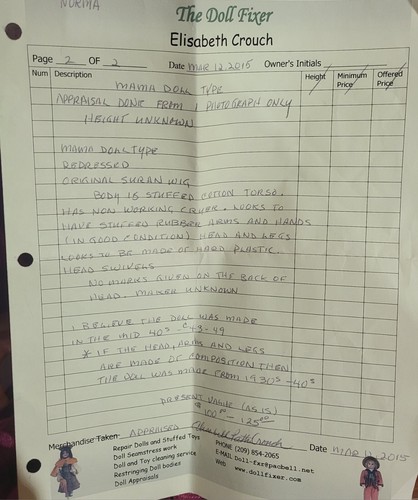 NORMA
The Doll Fixer
Elisabeth Crouch
Page 2 OF 2 Date MAR 12 2015 Owner's Initials
Num Description Height Minimum Price Offered Price
MAMA DOLL TYPE
APPRAISAL DONE FROM 1 PHOTOGRAPH ONLY
HEIGHT UNKNOWN
MAMA DOLL TYPE
REDRESSED
ORIGINAL SURAN WIG
BODY IS STUFFED COTTON TORSO.
HAS NON WORKING CRYER. LOOKS TO
HAVE STUFFED RUBBER ARMS AND HANDS
(IN GOOD CONDITION) HEAD AND LEGS
LOOKS TO BE MADE OF HARD PLASTIC.
HEAD SWIVELS
NO MARKS GIVEN ON THE BACK OF
HEAD. MAKER UNKNOWN
I BELIEVE THE DOLL WAS MADE
IN THE MID 40S - C43-49
* IF THE HEAD, ARMS AND LEGS
ARE MADE OF COMPOSITION THEN
THE DOLL WAS MADE FROM 1930S-40S
PRESENT VALUE (AS IS)
$100.00 - 125.00
Merchandise Taken: APPRAISED Elisabeth Crouch Date MAR 12 2015
Repair Dolls and Stuffed Toys
Doll Seamstress work
Doll and Toy cleaning service
Restringing Doll bodies
Doll Appraisals
PHONE (209) 854-2065
E-MAIL Doll-fxr@pacbell.net
Web www.dollfixer.com